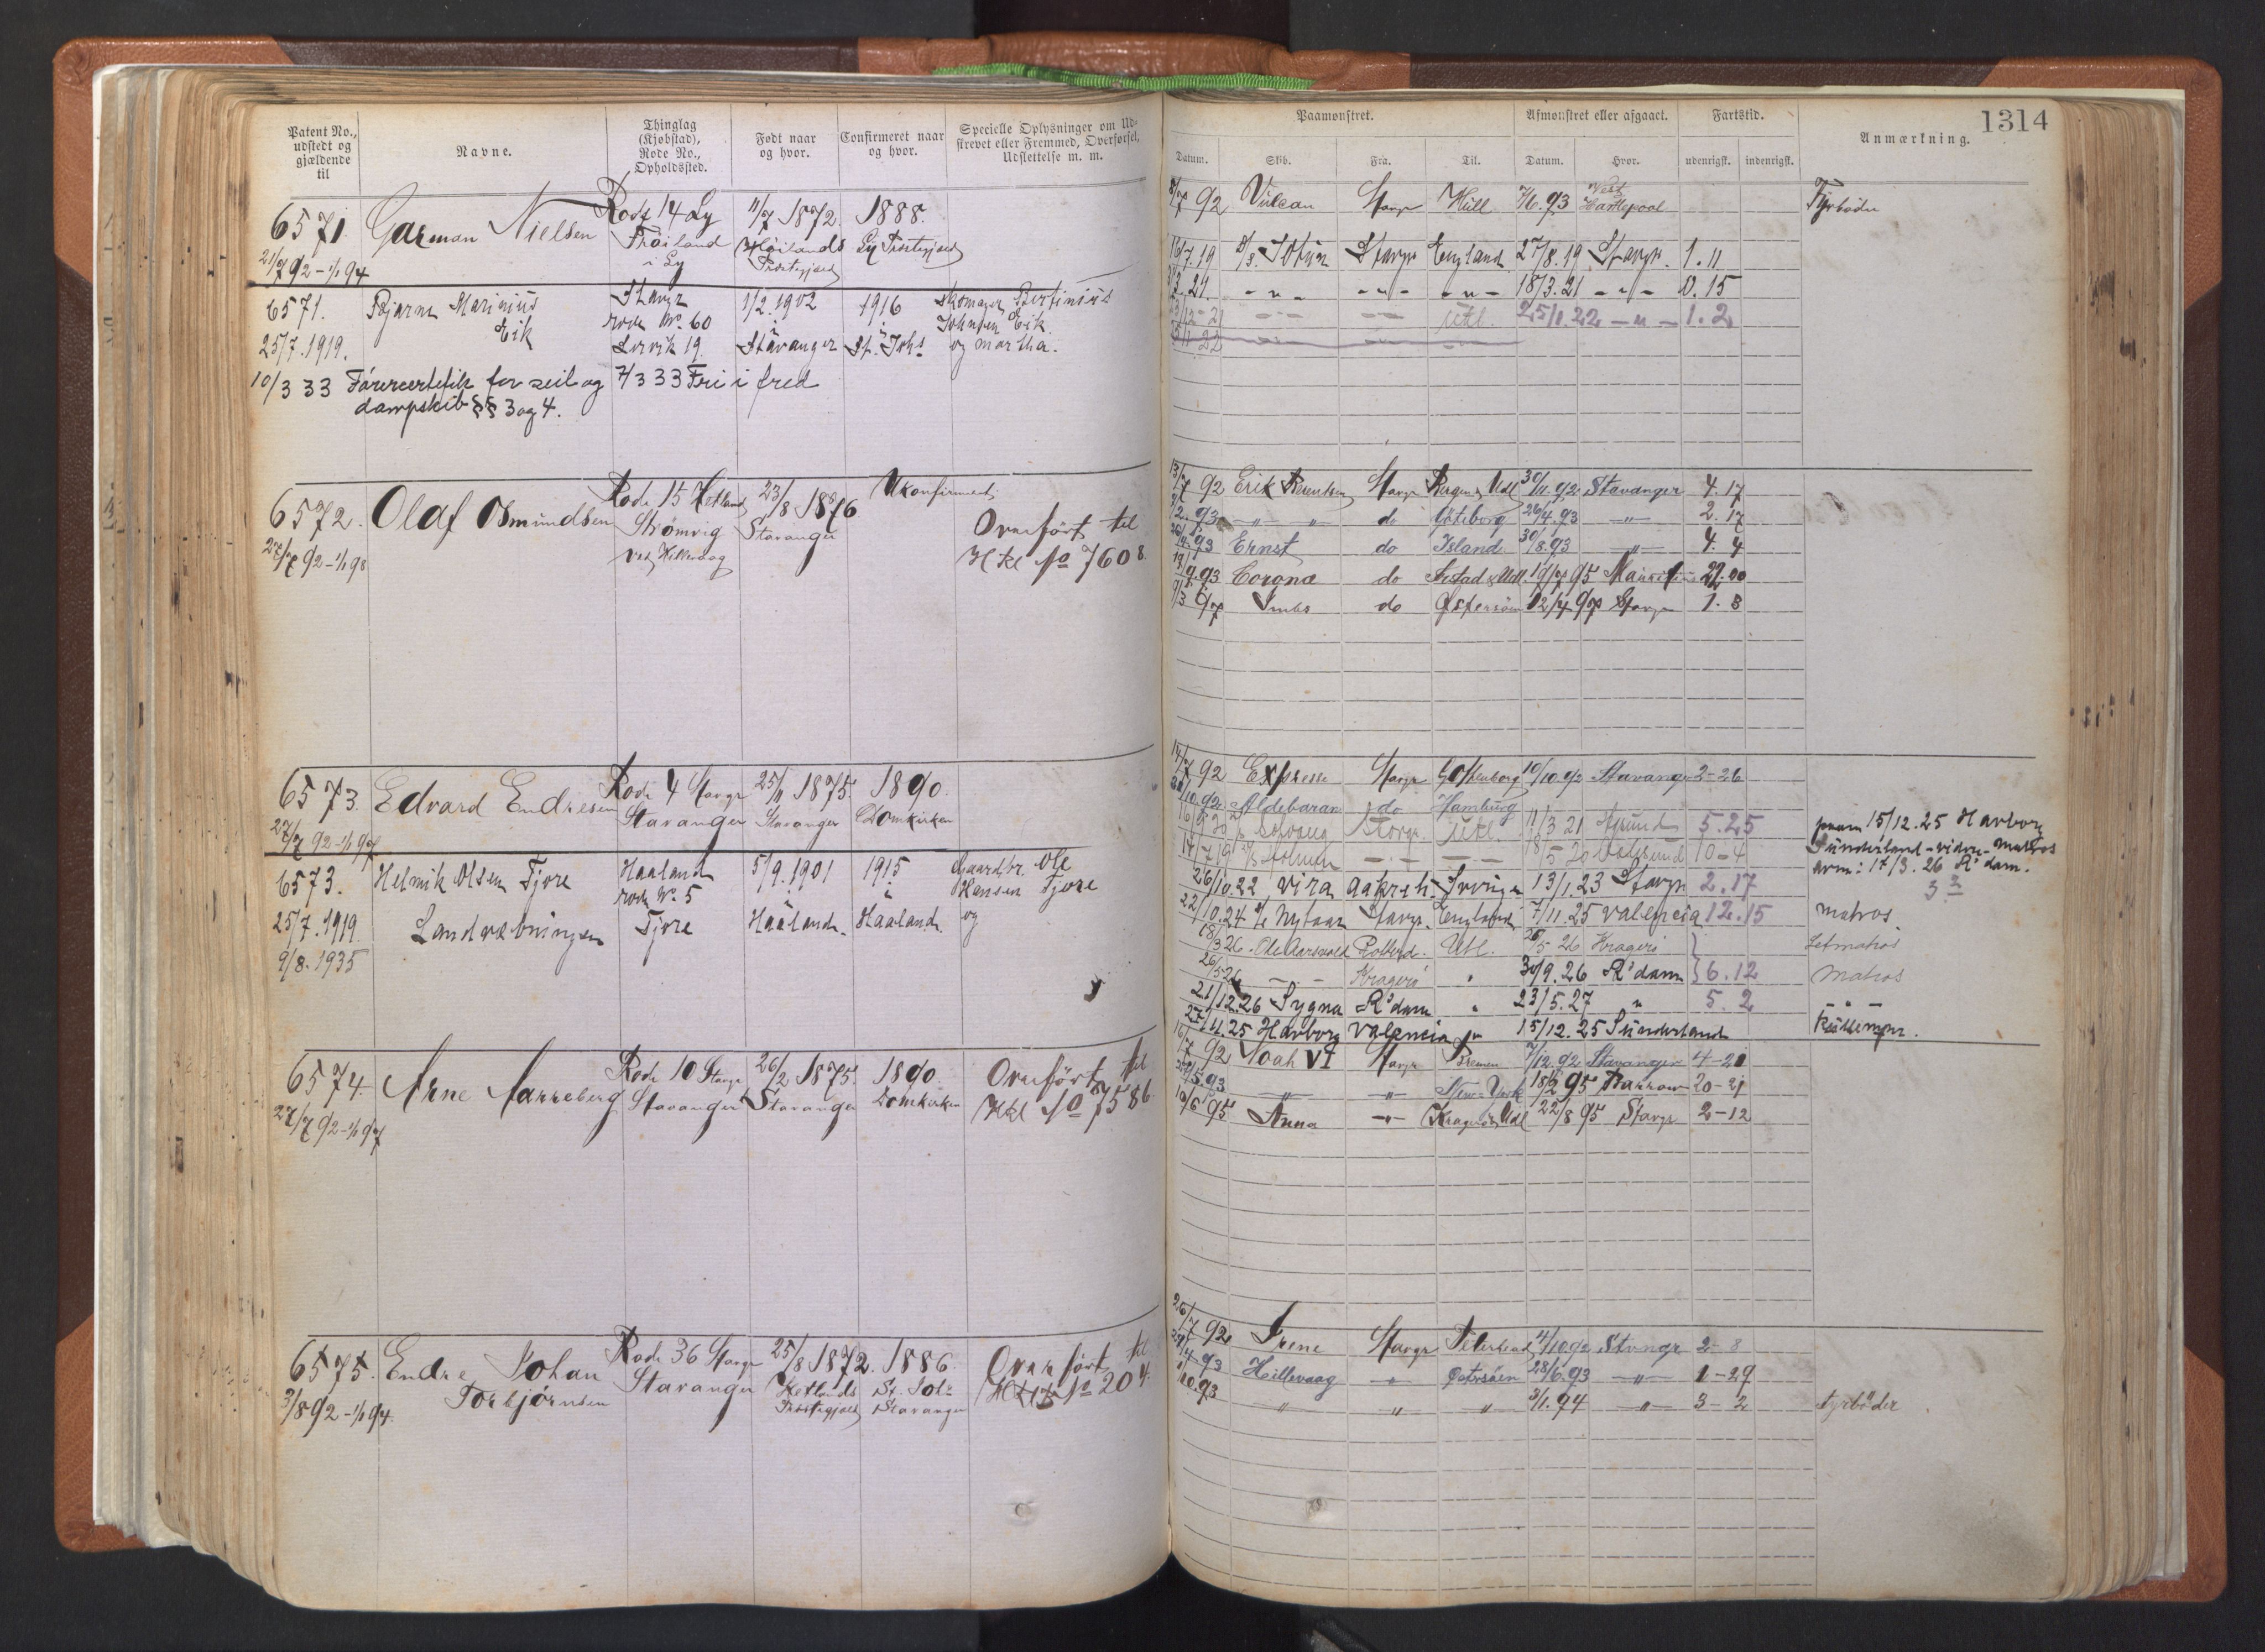 Patent No., udstedt og gjældende til
Navne.
Thinglag (Kjøbstad), Rode No., Opholdssted.
Født naar og hvor.
Confirmeret naar og hvor.
Specielle Oplysninger om Udskrevet eller Fremmed, Overførsel, Udslettelse m. m.
6571. Garman Nielsen Rode 14 Ly 11/7 1872. 1888.
21/7 92 - 1/1 94 i Ly Høilands Præstegjæld Ly Præstegjæld
6571. Bjarne Marinius Eik Stavgr rode No. 60 1/2.1902 1916 Skomager Bertinius
25/7.1919. Lervik 19 Stavanger St. Johs Johnsen Eik og Martha.
10/3 33 Førercertifik for seil og 7/3 33 Fri i fred
dampskib §§ 3 og 4.
6572. Olaf Osmundsen Rode 15 Hetland 23/8 1876 Ukonfirmert
27/7 92 - 1/1 98 Strömvig ved Hillevaag Stavanger Overført til
Hkl No 7608.
6573. Edvard Endresen Rode 4 Stavgr 25/11 1875. 1890.
27/7 92 - 1/1 97 Stavanger Stavanger Domkirken
6573. Helmik Olsen Tjore Haaland rode No. 5 5/9.1901 1915 Gaardbr. Ole
25/7.1919 Landvæbningen Tjore Haaland. Haaland. Hansen Tjore og
9/8.1935
6574. Arne Aarreberg Rode 10 Stavgr 26/2 1875. 1890. Overført til
27/7 92 - 1/1 97 Stavanger Stavanger Domkirken Hkl No 7586
6575. Endre Johan Torbjörnsen Rode 36 Stavgr 25/8 1872. 1886. Overført til
3/8 92 - 1/1 94. Stavanger Hetlands Præstegjæld St. Joh: Stavanger No 204.
1314
Paamønstret.
Afmønstret eller afgaaet.
Fartstid.
Anmærkning.
Datum. Skib. Fra. Til. Datum. Hvor. udenrigsk. indenrigsk.
92 Vulcan Stavgr Hull 7/6.93 West Hartlepool Fyrbøder
16/7.19 Stavgr England 27/8.19 Stavgr. 1.11
18/3.21 0.15
Utl. 25/1.22 - " - 1.2
13/7 92 Erik Stavgr Bergen & Udl 30/11.92 Stavanger 4.17
93 " " do Göteborg 26/4.93 " 2.17
93 Ernst do Island 30/8.93 " 4. 4
19/9.93 Corona do 19/7 95 22.00
9/3 97 do Østersöen 12/4 97 Stavgr 1. 3
14/7 92 Expresse Stavgr Gothenborg 10/10.92 Stavanger 2-26
10.92 Aldebaran do Hamburg
Stavgr. Utl. 11/3 21 5.25
10-4
paam 15/12.25 Havborg
Sunderland - viden - matros
avm: 17/3.26 R'dam.
26/10.22 Vira 13/1.23 Stavgr 2.17
22/10.24 Stavgr. England 7/11.25 Valencia 12.15 matros
18/3 26. Ole Aarsvold Utl. 5 26 Kragerö Letmatros
26/5 26 Kragerö " 30/9.26 R'dam 6.12 Matros
21/12.26 Sygna R'dam " 23/5.27 " 5. 2 - " -
27/11.25 Havborg Valencia 15/12.25 Sunderland
16/7 92 Noah VI Stavgr Bremen 7/12.92 Stavanger 4-21
93 " " New-York 95 Barrow 20-21
10/6 95 Anna " Kragerö & Udl 22/8 95 Stavgr 2-12
26/7 92 Irene Stavgr Peterhead 4/10.92 Stvngr 2- 8
93 Hillevaag " Østersöen 28/6.93 " 1-29
10.93 " " " 3/1.94 " 3- 2 fyrbøder